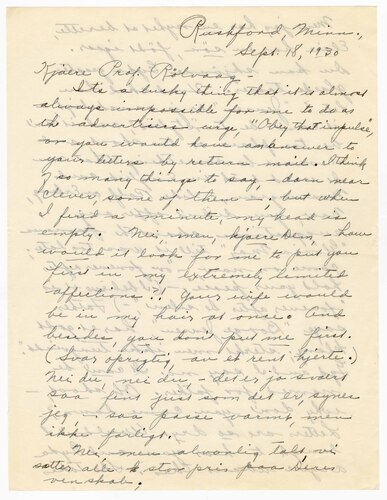 Rushford, Minn.,
Sept. 18, 1930
Kjære Prof. Rölvaag -
It's a lucky thing that it is almost
always impossible for me to do as
the advertisers urge, "Obey that impulse",
or you would have an answer to
your letters by return mail. I think
of so many things to say, - darn near
clever, some of them - . but when
I find a minute, my head is
empty. Nei, men, kjære Dem, - how
would it look for me to put you
first in my extremely limited
affections?! Your wife would
be in my hair at once. And
besides you don't put me first.
(Svar oprigtig, - av et rent hjerte.)
Nei du, nei du, - det er jo svært
saa fint just som det er, synes
jeg, - saa passe varmt, men
ikke farligt.
Nei, men alvorlig talt, vi
setter alle stor pris paa Deres
venskab,